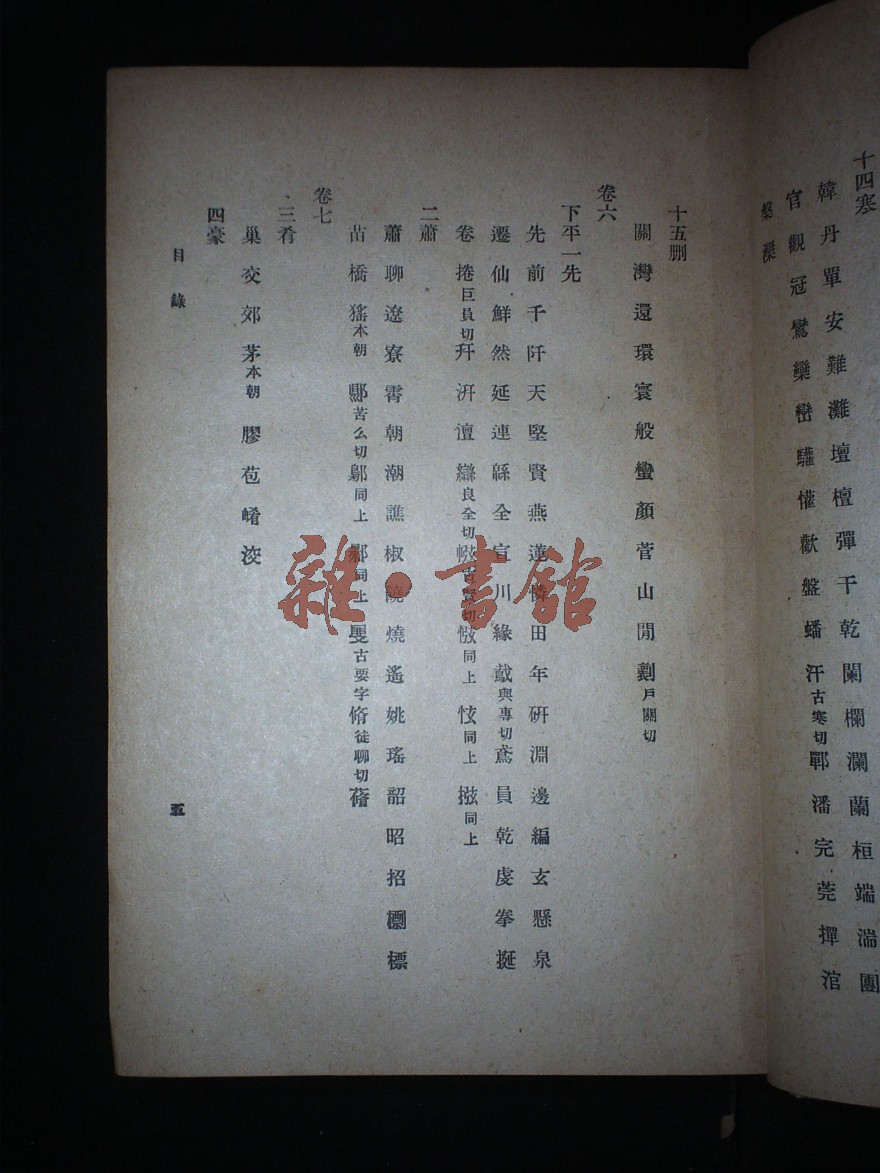 十四寒
韓丹單安難灘壇檀彈干乾闌欄瀾蘭桓端湍團
官觀冠鸞欒巒驩懽歡盤蟠汗古寒切鄲潘完莞撣涫
十五刪
關灣還環寰般蠻顏菅山閒剗戶關切
卷六
下平一先
先前千阡天堅賢燕蓮憐田年硏淵邊編玄懸泉
遷仙鮮然延連緜全宣川緣戭與專切鳶員乾虔拳挻
卷捲巨員切幵汧澶良全切同上同上同上
二蕭
蕭聊遼寮霄朝潮譙椒燒遙姚瑤韶昭招標
苗橋猺本朝鄡苦么切鄥同上同上古要字脩徒聊切蓨
卷七
三肴
巢交郊茅本朝膠苞崤洨
四豪
目錄
五
雜·書館